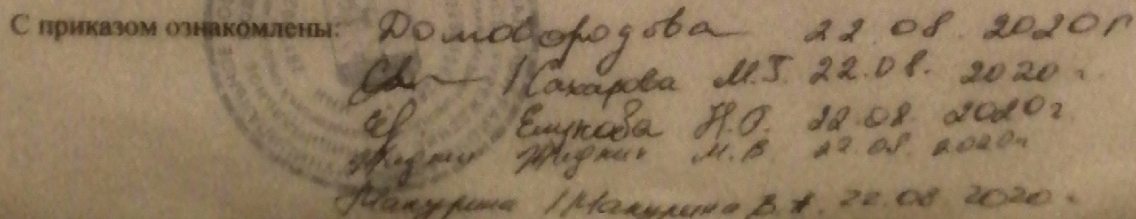 С приказом ознакомлены: Домовородова 22.08.2020г
/Сахарова М.Г. 22.08.2020г.
Елунова Н.Г. 22.08.2020г
Жидких Жидких М.В. 22.08.2020г
Макурина /Макурина В.А. 22.08.2020г.